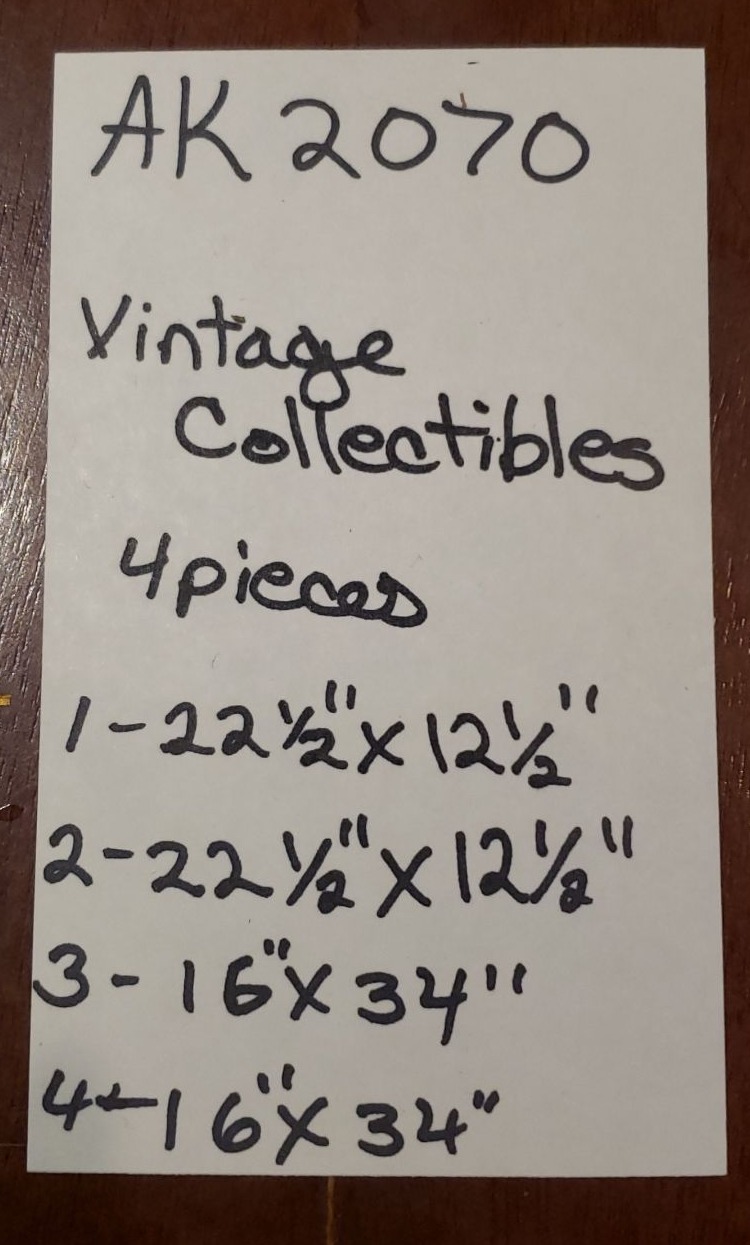 AK 2070
Vintage
Collectibles
4 pieces
1-22 1/2" x 12 1/2"
2-22 1/2" x 12 1/2"
3 - 16" x 34"
4 - 16" x 34"